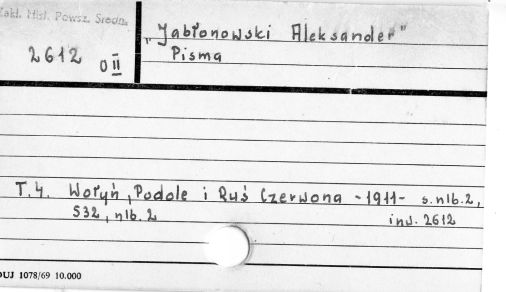 Zakł. Hist. Powsz. Średn.
2612 O II
"Jabłonowski Aleksander"
Pisma
T.4. Wołyń, Podole i Ruś Czerwona -1911- s.nlb.2,
532, nlb. 2
inw. 2612
DUJ 1078/69 10.000